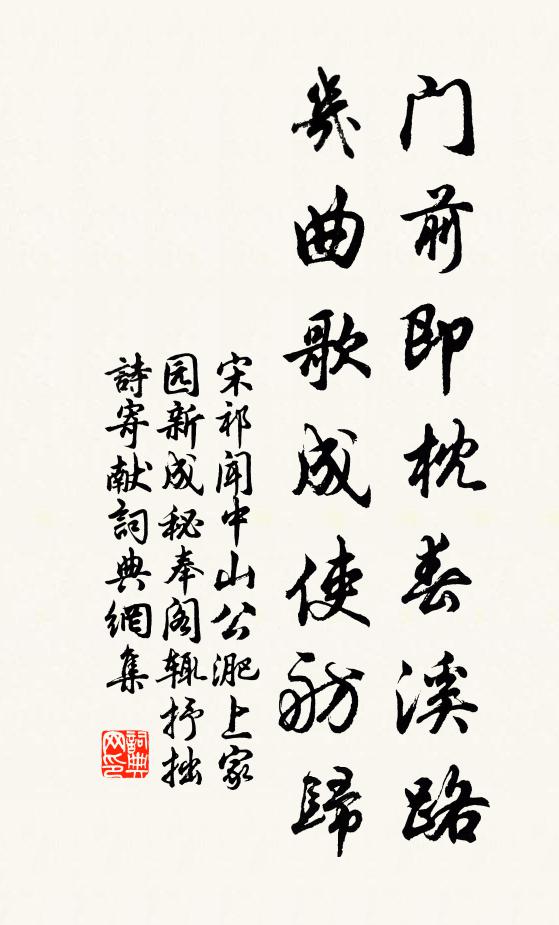 门前即枕春溪路
几曲歌成使舫归
宋祁闻中山公淝上家
园新成秘奉阁辄抒拙
詩寄献詞典網集
詞典网印